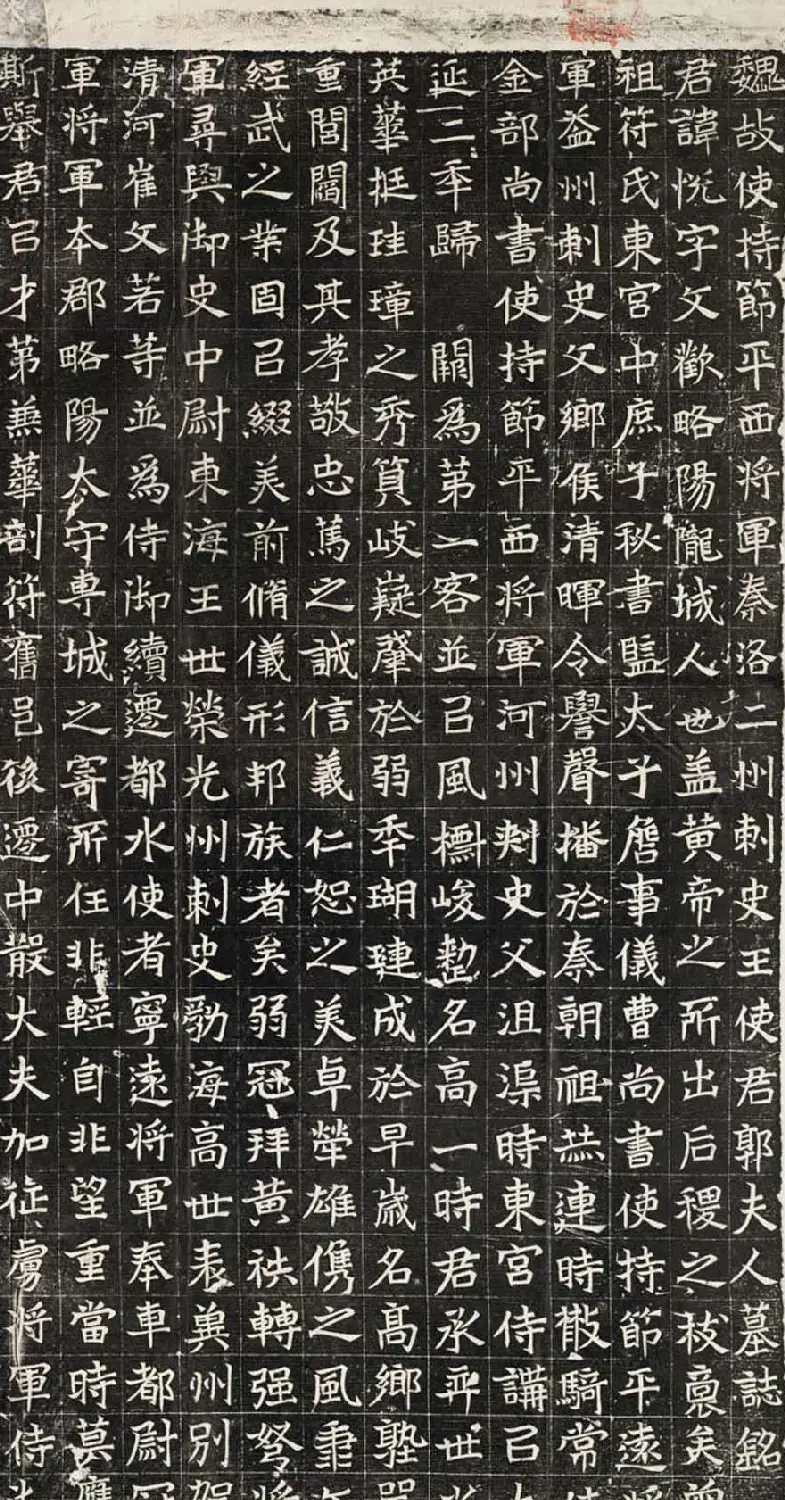 魏故使持節平西將軍秦洛二州刺史王使君郭夫人墓誌銘
君諱悅字文歡略陽隴城人也盖黃帝之所出后稷之裔矣
祖符氏東宮中庶子秘書監太子詹事儀曹尚書使持節平遠將
軍益州刺史父鄉侯清暉令譽聲播於秦朝祖恭連時散騎常侍
金部尚書使持節平西將軍河州刺史父沮渠時東宮侍講以
延二年歸 闕為第一客並以風櫛峻整名高一時君承弈世
英華挺珪璋之秀質岐嶷肇於弱年瑚璉成於早歲名高鄉塾
重閭閻及其孝敬忠篤之誠信義仁恕之美卓犖雄儁之風肅
經武之業固以綴美前脩儀形邦族者矣弱冠拜黃袟轉强弩將
軍尋與御史中尉東海王世榮光州刺史勃海高世表冀州別駕
清河崔文若等並為侍御續遷都水使者寧遠將軍奉車都尉冠
軍將軍本郡略陽太守專城之寄所任非輕自非望重當時莫應
斯舉君以才第兼華剖符舊邑後遷中散大夫加征虜將軍侍